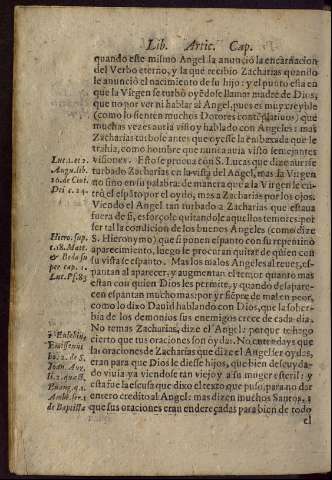 Lib. Artic. Cap.
quando este mismo Angel la anunciò la encarnacion
del Verbo eterno, y la que recibio Zacharias quando
le anunciò el nacimiento de su hijo: y el punto esta en
que la Virgen se turbò oyẽdose llamar madre de Dios,
que no por ver ni hablar al Angel, pues es muy creyble
(como lo sienten muchos Dotores contẽplatiuos) que
muchas vezes auia visto y hablado con Angeles: mas
Zacharias turbose antes que oyesse la ẽbaxada que le
trahia, como hombre que nunca auia visto semejantes
visiones. Esto se prueua con S. Lucas que dize auerse
turbado Zacharias en la vista del Angel, mas la Virgen
no sino en su palabra: de manera que a la Virgen le en-
trò el espãto por el oydo, mas a Zacharias por los ojos.
Viendo el Angel tan turbado a Zacharias que estaua
fuera de si, esforçole quitandole aquellos temores: por
ser tal la condicion de los buenos Angeles (como dize
S. Hieronymo) que si ponen espanto con su repentino
aparecimiento, luego le procuran quitar de quien con
su vista se espanto. Mas los malos Angeles al reues, es-
pantan al aparecer, y augmentan el temor quanto mas
estan con quien Dios les permite, y quando desapare-
cen espantan mucho mas: por yr siẽpre de mal en peor,
como lo dixo Dauid hablando con Dios, que la sober-
bia de los demonios sus enemigos crece de cada dia.
No temas Zacharias, dize el Angel: porque te hago
cierto que tus oraciones son oydas. No entendays que
las oraciones de Zacharias que dize el Angel ser oydas,
eran para que Dios le diesse hijos, que bien descuyda-
do viuia ya viendose tan viejo y a su muger esteril: y
esta fue la escusa que dixo el texto que puso, para no dar
entero credito al Angel: mas dizen muchos Santos:
que sus oraciones eran endereçadas para bien de todo
el
Luc. 1. et 2.
Augu. lib.
10. de Ciui.
Dei c. 24.
Hiero. sup.
c. 28. Matt.
& Beda su
per cap. 1.
Luc. Ps. 83
Emissenus
ho. 2. de S.
Joan. Au.
li. 2. quæst.
Euang. q. 1.
Amb. ser. 1
de Baptista